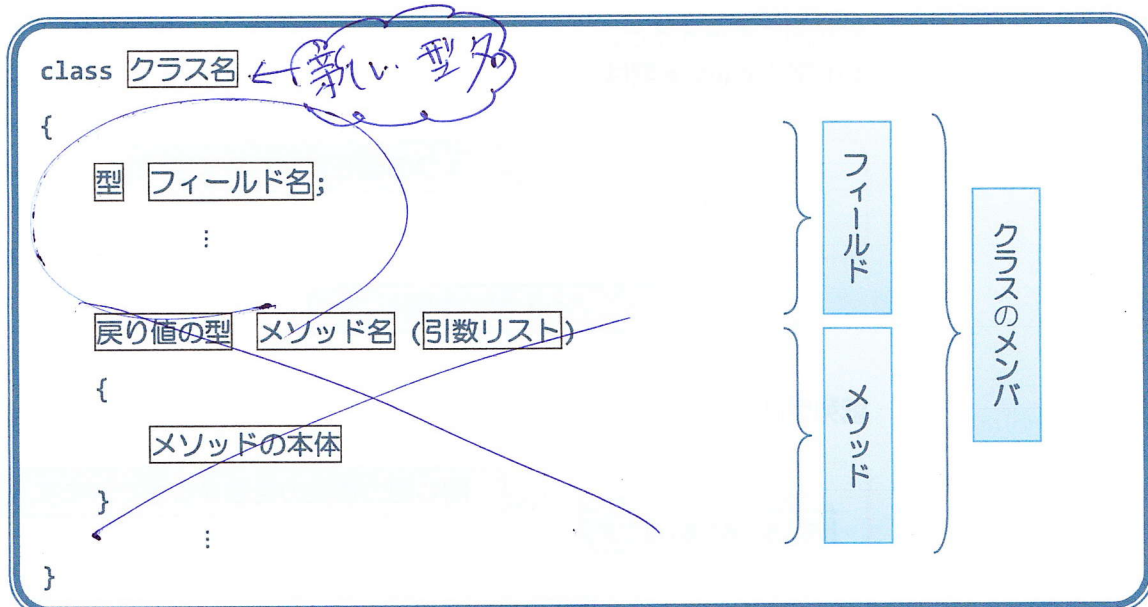 class クラス名 ← 新しい型名
{
型 フィールド名;
⋮
戻り値の型 メソッド名 (引数リスト)
{
メソッドの本体
}
⋮
}
フィールド
メソッド
クラスのメンバ